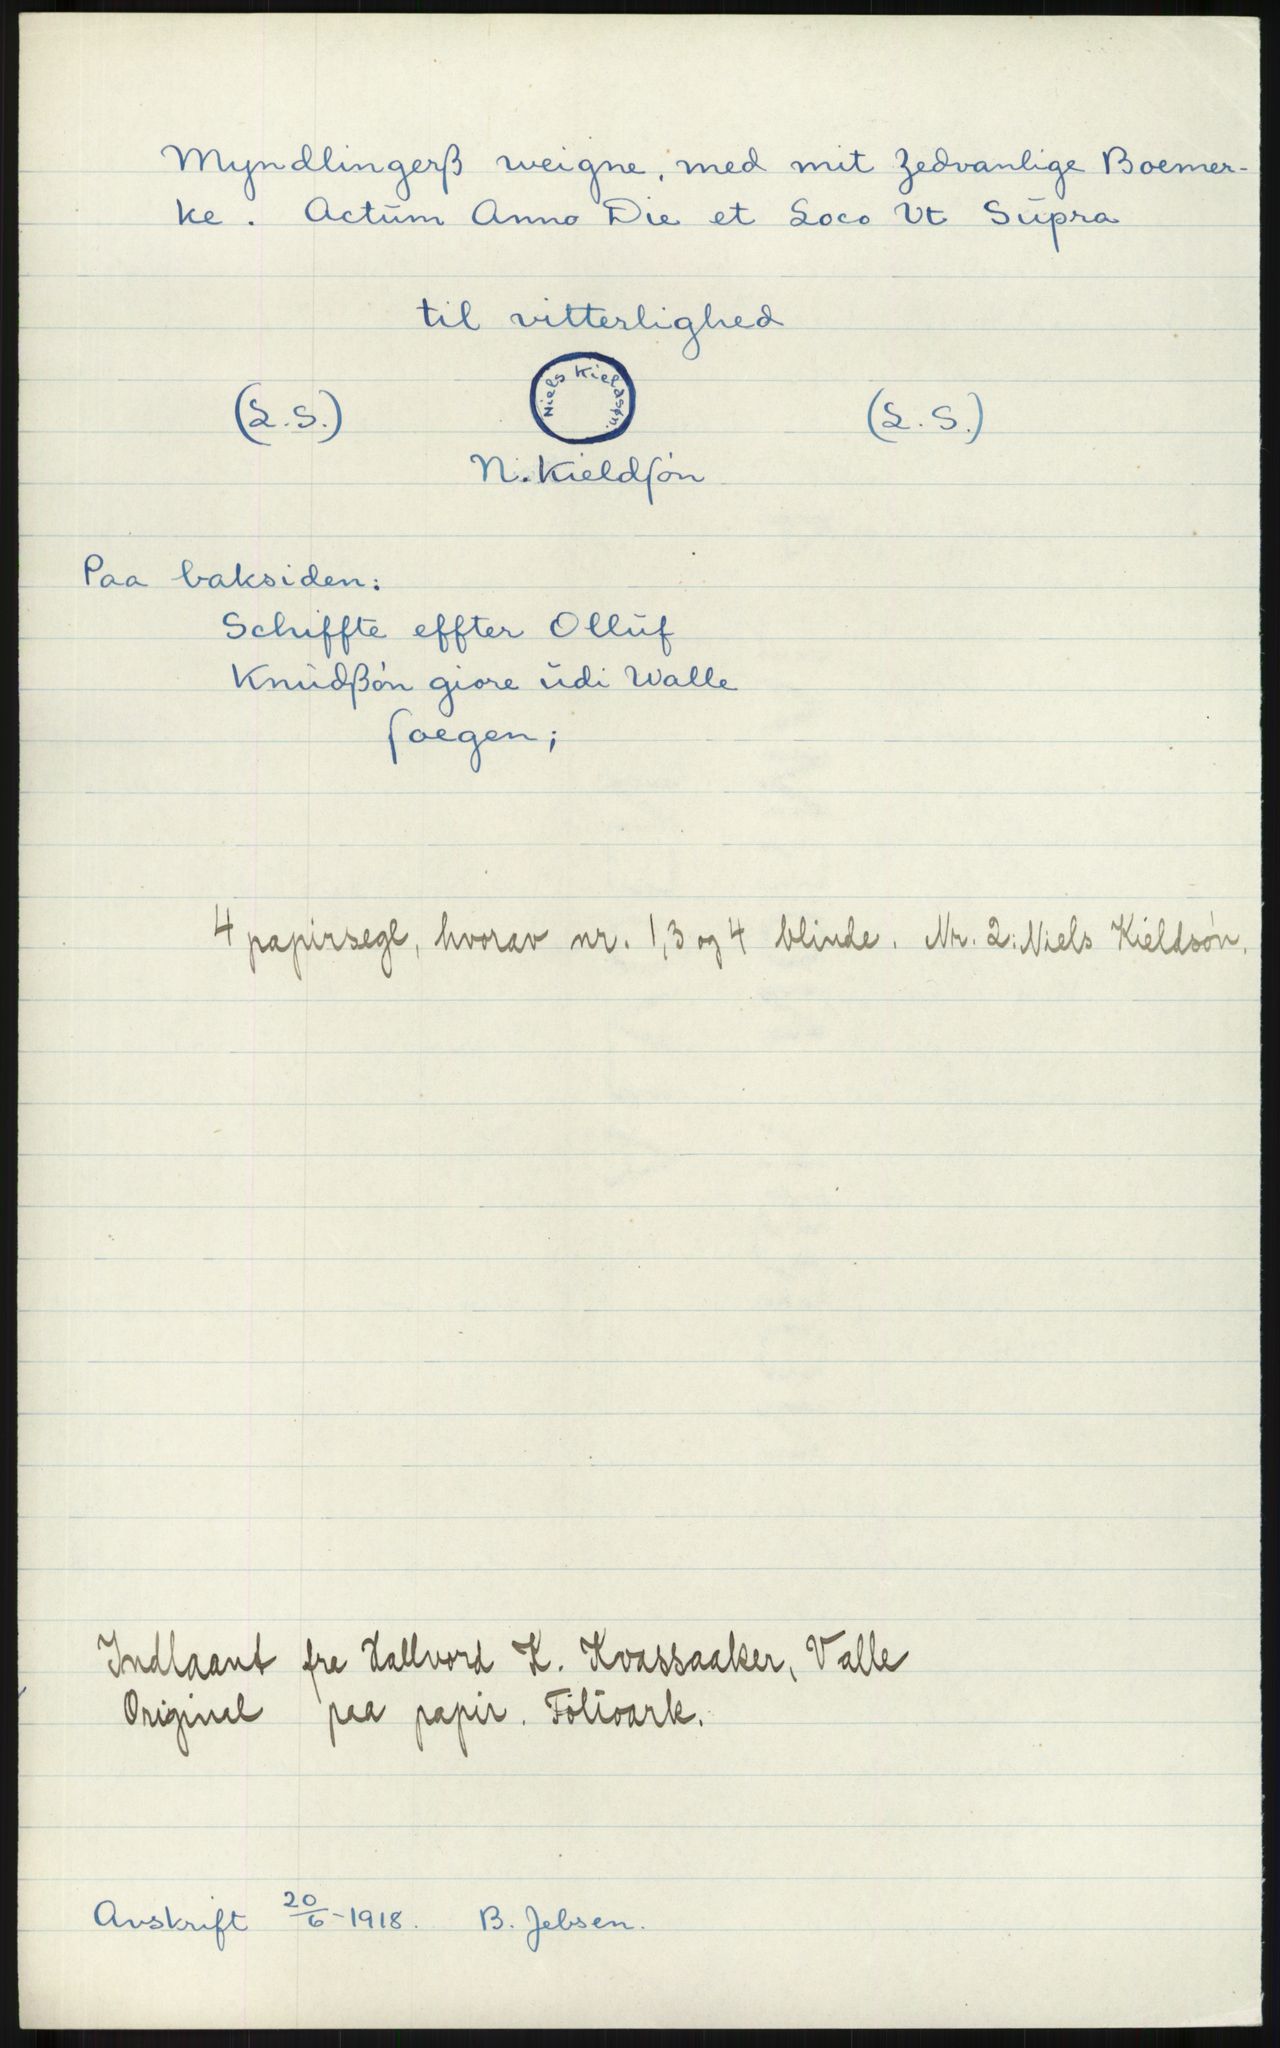 Myndlingerß weigne, med mit Zedvanlige Boemer-
ke. Actům Anno Die et Loco Vt Sůpra
til vitterlighed
(L.S.) Niels Kieldsøn. (L.S.)
N. Kieldſøn
Paa baksiden:
Schiffte effter Ollůf
Knůdßøn giore ůdi Walle
ſoegen;
4 papirsegl, hvorav nr. 1, 3 og 4 blinde. Nr. 2: Niels Kieldsøn.
Indlaant fra Hallvord K. Kvassaaker, Valle
Original paa papir. Folioark.
Avskrift 20/6-1918. B. Jebsen.